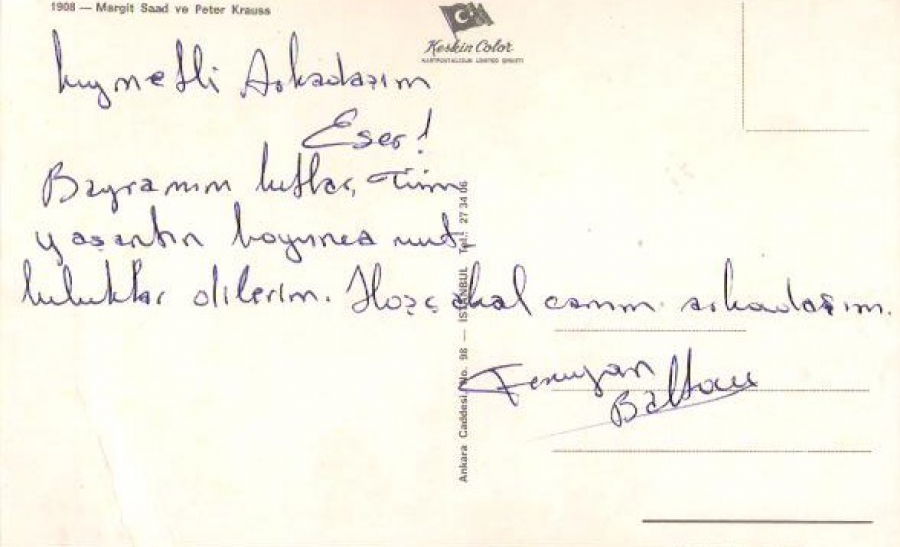 1908 — Margit Saad ve Peter Krauss
Keskin Color
KARTPOSTALCILIK LIMITED ŞİRKETİ
Kıymetli Arkadaşım
Eser!
Bayramın kutlar, Tüm
yaşantın boyunca mut
luluklar dilerim. Hoşçakal canım arkadaşım.
Baltacı
Ankara Caddesi No. 98 — İSTANBUL Tel.: 27 34 06